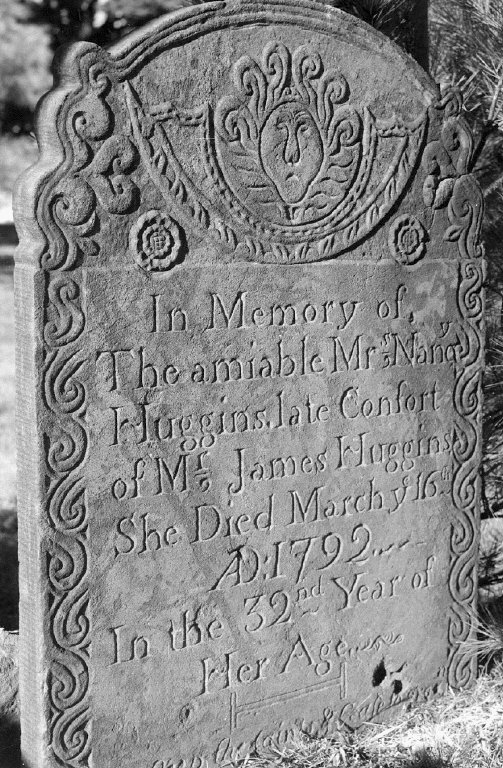 In Memory of,
The amiable Mrs Nancy
Huggins, late Confort
of Mr James Huggins
She Died March ye 16th
AD. 1792
In the 32nd Year of
Her Age